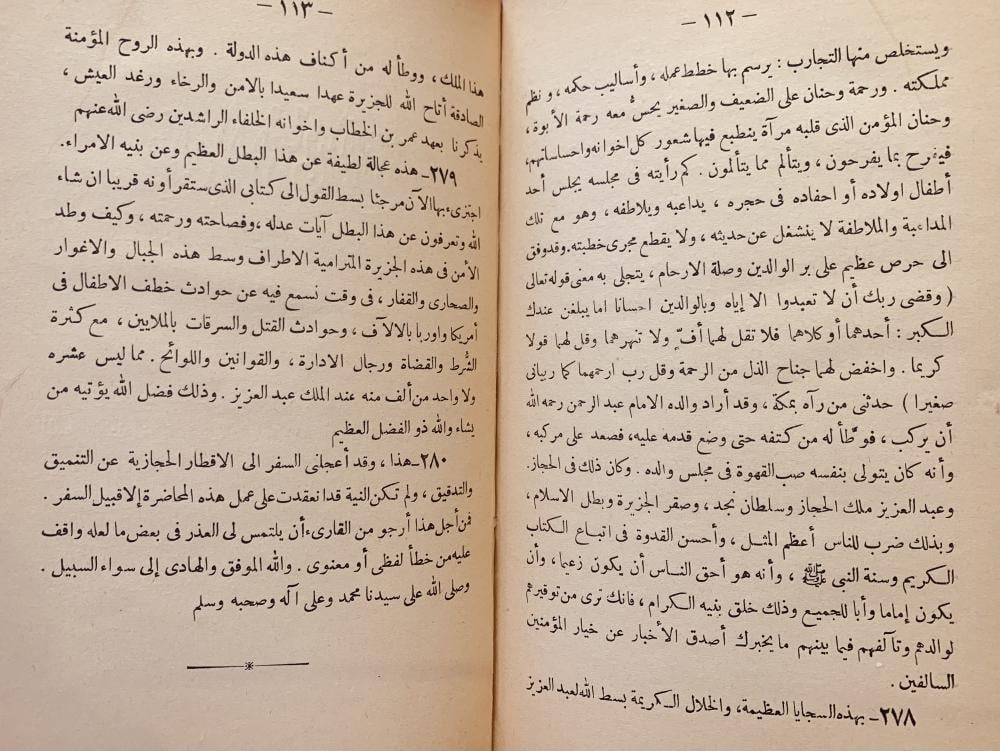 — ١١٢ —
ويستخلص منها التجارب : يرسم بها خطط عمله ، وأساليب حكمه ، ونظم
مملكته . ورحمة وحنان على الضعيف والصغير يحسُّ معه رحمة الأبوة ،
وحنان المؤمن الذى قلبه مرآة ينطبع فيها شعور كل اخوانه واحساساتهم ،
فيفرح بما يفرحون ، ويتألم مما يتألمون . كم رأيته فى مجلسه يجلس أحد
أطفال اولاده أو احفاده فى حجره ، يداعبه ويلاطفه ، وهو مع تلك
المداعبة والملاطفة لا ينشغل عن حديثه ، ولا يقطع مجرى خطبته . وقد وفق
الى حرص عظيم على بر الوالدين وصلة الارحام ، يتجلى به معنى قوله تعالى
( وقضى ربك أن لا تعبدوا الا إياه وبالوالدين احسانا اما يبلغن عندك
الكبر : أحدهما أو كلاهما فلا تقل لهما أفّ ولا تنهرهما وقل لهما قولا
كريما . واخفض لهما جناح الذل من الرحمة وقل رب ارحمهما كما ربيانى
صغيرا ) حدثنى من رآه بمكة ، وقد أراد والده الامام عبد الرحمن رحمه الله
أن يركب ، فوطّأ له من كتفه حتى وضع قدمه عليه ، فصعد على مركبه ،
وأنه كان يتولى بنفسه صب القهوة فى مجلس والده . وكان ذلك فى الحجاز .
وعبد العزيز ملك الحجاز وسلطان نجد ، وصقر الجزيرة وبطل الاسلام ،
وبذلك ضرب للناس أعظم المثل ، وأحسن القدوة فى اتباع الكتاب
الكريم وسنة النبى ﷺ ، وأنه هو أحق الناس أن يكون زعيما ، وأن
يكون إماما وأبا للجميع وذلك خلق بنيه الكرام ، فانك ترى من توقيرهم
لوالدهم وتآلفهم فيما بينهم ما يخبرك أصدق الأخبار عن خيار المؤمنين
السالفين .
٢٧٨ـ بهذه السجايا العظيمة ، والخلال الكريمة بسط الله لعبد العزيز
— ١١٣ —
هذا الملك ، ووطأ له من أكناف هذه الدولة . وبهذه الروح المؤمنة
الصادقة أتاح الله للجزيرة عهدا سعيدا بالامن والرخاء ورغد العيش ،
يذكرنا بعهد عمر بن الخطاب واخوانه الخلفاء الراشدين رضى الله عنهم
٢٧٩ـ هذه عجالة لطيفة عن هذا البطل العظيم وعن بنيه الامراء .
اجتزىء بها الآن مرجئا بسط القول الى كتابى الذى ستقرأونه قريبا ان شاء
الله وتعرفون عن هذا البطل آيات عدله ، وفصاحته ورحمته ، وكيف وطد
الأمن فى هذه الجزيرة المترامية الاطراف وسط هذه الجبال والاغوار
والصحارى والقفار ، فى وقت نسمع فيه عن حوادث خطف الاطفال فى
أمريكا واوربا بالالآف ، وحوادث القتل والسرقات بالملايين ، مع كثرة
الشُّرط والقضاة ورجال الادارة ، والقوانين واللوائح . مما ليس عشره
ولا واحد من ألف منه عند الملك عبد العزيز . وذلك فضل الله يؤتيه من
يشاء والله ذو الفضل العظيم
٢٨٠ـ هذا ، وقد أعجلنى السفر الى الاقطار الحجازية عن التنميق
والتدقيق ، ولم تكن النية قد انعقدت على عمل هذه المحاضرة إلا قبيل السفر .
فمن أجل هذا أرجو من القارىء أن يلتمس لى العذر فى بعض ما لعله واقف
عليه من خطأ لفظى أو معنوى . والله الموفق والهادى إلى سواء السبيل .
وصلى الله على سيدنا محمد وعلى آله وصحبه وسلم